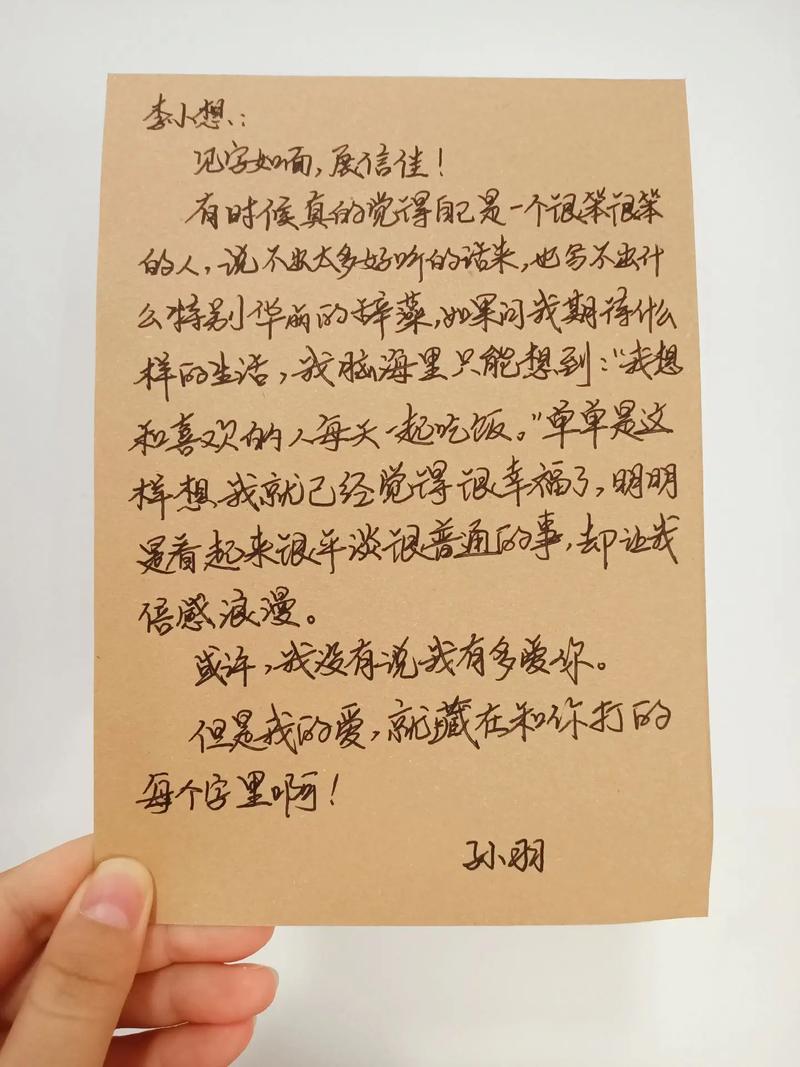 李小想：
见字如面，展信佳！
有时候真的觉得自己是一个很笨很笨
的人，说不出太多好听的话来，也写不出什
么特别华丽的辞藻，如果问我期待什么
样的生活，我脑海里只能想到："我想
和喜欢的人每天一起吃饭。"单单是这
样想我就已经觉得很幸福了，明明
是看起来很平淡很普通的事，却让我
倍感浪漫。
或许，我没有说我有多爱你。
但是我的爱，就藏在和你打的
每个字里啊！
孙小羽